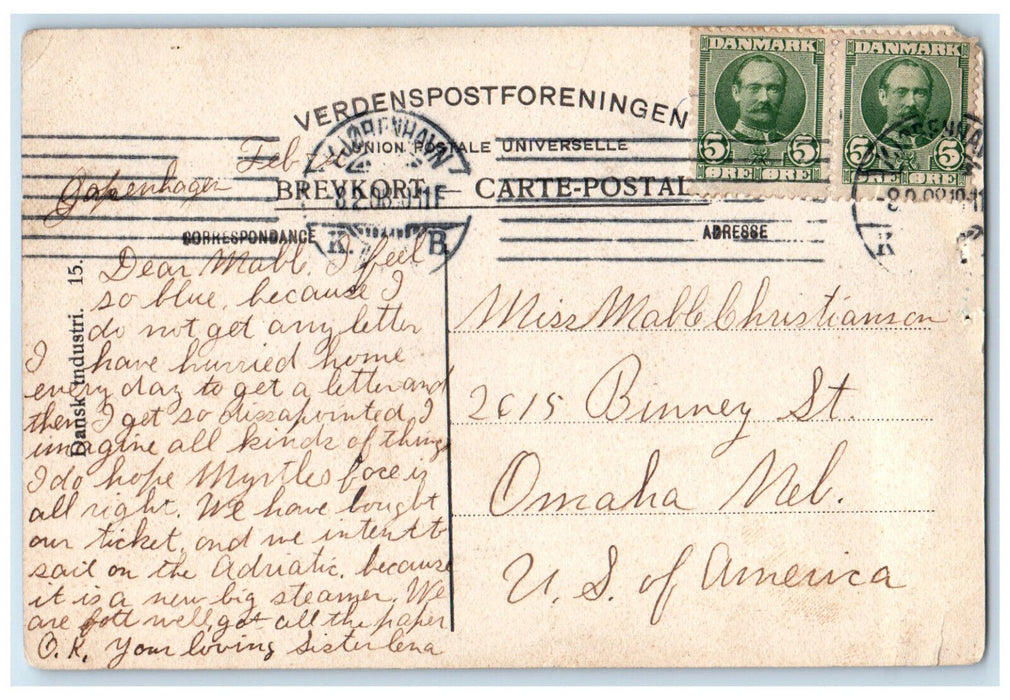 DANMARK DANMARK
5 5 5 5
ØRE ØRE ØRE ØRE
VERDENSPOSTFORENINGEN
UNION POSTALE UNIVERSELLE
BREVKORT — CARTE-POSTAL
KJØBENHAVN
8.2.08.
K. B.
KJØBENHAVN
K
CORRESPONDANCE
ADRESSE
Dansk Industri. 15.
Copenhagen Feb
Dear Mabl. I feel
so blue, because I
do not get any letter
I have hurried home
every day to get a letter and
then I get so dissapointed, I
imagine all kinds of things
I do hope Myrtles face is
all right. We have bought
our ticket, and we intent t
sail on the Adriatic. because
it is a new big steamer. We
are well got all the paper
O.K. Your loving Sister Lena
Miss Mable Christianson
2615 Binney St.
Omaha Neb.
U. S. of America